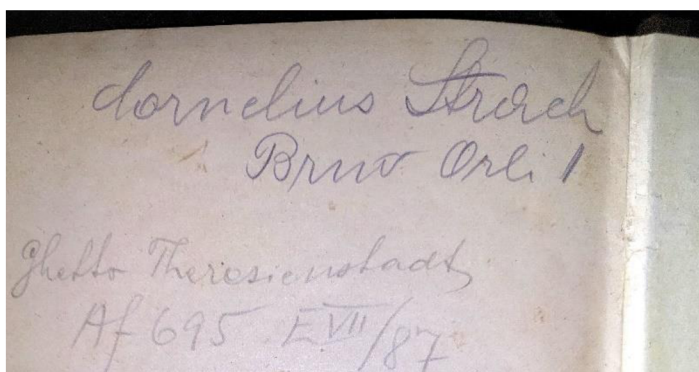 Cornelius Strach
Brno Orlí 1
Ghetto Theresienstadt
Af 695 E VII/87